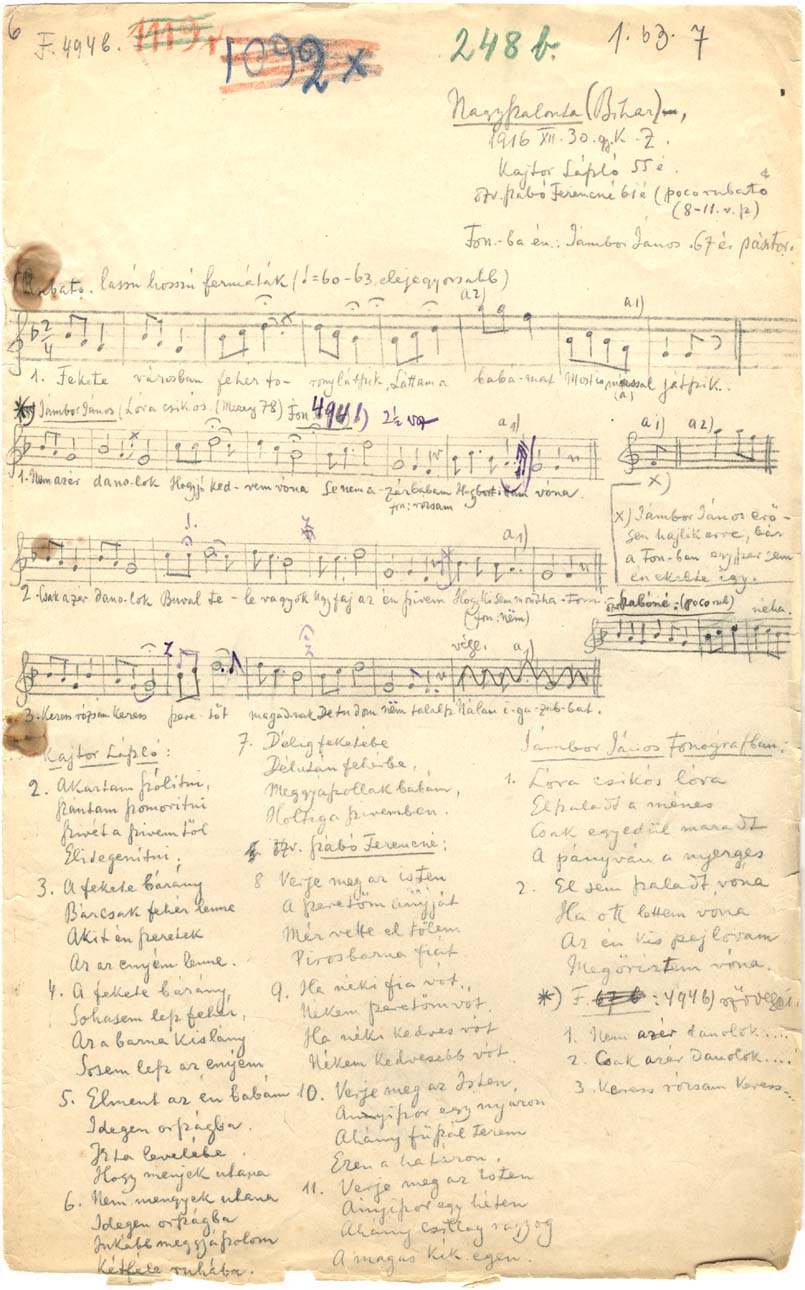 6
F. 494b. 1119x
1092x
248b.
1.b3.7
Nagyszalonta (Bihar),
1916 XII. 30. gy. K. Z.
Kajtor László 55 é.
özv. Szabó Ferencné 61 é (poco rubato
(8-11. v. sz)
Fon.-ba én.: Jámbor János. 67 és pásztor.
Rubato. lassú hosszú fermáták (♩=60-63, eleje gyorsabb)
a2) a1)
1. Fekete városban fehér to- rony látszik, Láttam a babá-mat Mostis mással játszik.
*) Jámbor János (Lóra csikós. (Mezey 78) Fon. 494b) 2½ ver
a1)
1. Nem azér dano-lok Hogy jó ked-vem vóna Se nem a-zér babám Hogy bort ittam vóna.
fon: rózsám
a1) a2)
x)
x) Jámbor János erő-
sen hajlik erre, bár
a Fon-ban egyszer sem
énekelte így.
a1)
2. Csak azér dano-lok Buval te-le vagyok Hogy faj az én szivem Hogy kisem mondha-tom
(fon: nëm)
özv. Szabóné: (poco rub) néha.
vége. a1)
3. Keress rózsám keress szere-tőt magadnak De tudom nëm találsz Nálam i-ga-zabbat.
Kajtor László:
2. Akartam szólítni,
Szántam szomorítni
Szivét a szivemtől
Elidegenítni.
3. A fekete bárány
Bárcsak fehér lenne
Akit én szeretek
Az az enyém lenne.
4. A fekete bárány,
Sohasem lesz fehér,
Az a barna kislány
Sosem lesz az enyém
5. Elment az én babám
Idegen országba.
Irta levelébe
Hogy menjek utana
6. Nem mengyek utana
Idegen országba
Inkább meggyászolom
Kétféle ruhába.
7. Délig feketébe
Délután fehérbe,
Meggyászollak babám,
Holtiga szivemben.
özv. Szabó Ferencné:
8 Verje meg az isten
A szeretőm annyját
Mér vette el tőlem
Pirosbarna fiát
9. Ha néki fia vót,
Nékem szeretőm vót,
Ha néki kedves vót
Nékem kedvesebb vót.
10. Verje meg az Isten,
Annyiszor egy nyáron
Ahány fűszál terem
Ezen a határon.
11. Verje meg az isten
Annyiszor egy héten
Ahány csillag ragyog
A magas kék egen.
Jámbor János Fonográfban:
1. Lóra csikós lóra
Elszaladt a ménes
Csak egyedül maradt
A pányván a nyerges
2. El sem szaladt vóna
Ha ott lettem vóna
Az én kis pejlovam
Megőriztem vóna.
*) F. 494b) szövegei.
1. Nem azér danolok....
2. Csak azér danolok....
3. Keress rózsám keress...